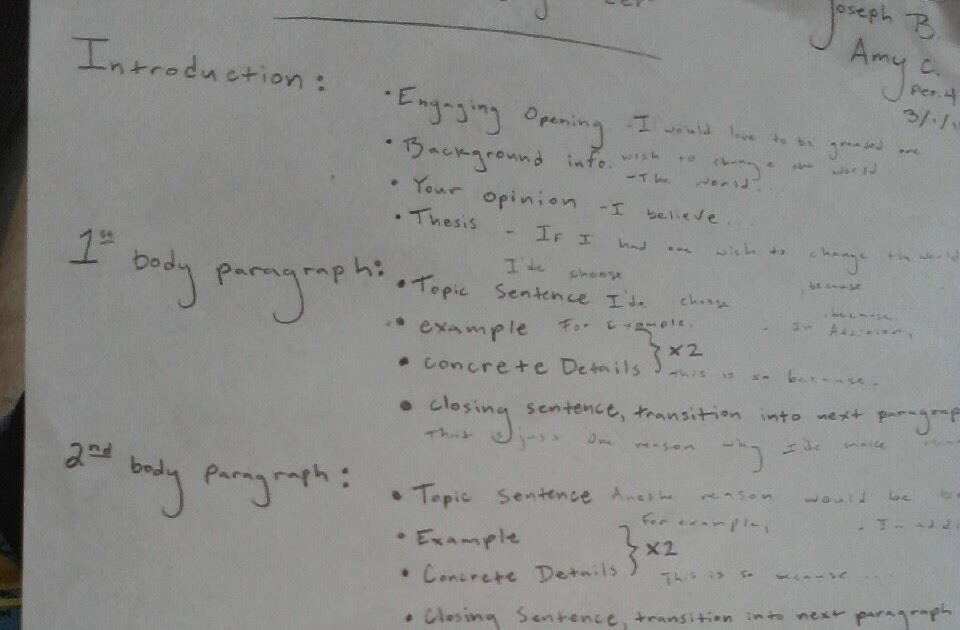 Joseph B
Amy C.
Per. 4
Introduction:
• Engaging Opening - I would love to be granted one
wish to change the world
• Background info. - The world...
• Your opinion - I believe...
• Thesis - If I had one wish to change the world
I'de choose , because
1st body paragraph:
• Topic Sentence I'de choose because
• example For Example. . In Addision,
• concrete Details } x2 This is so because.
• closing sentence, transition into next paragrap
That is just one reason why I'de make
2nd body paragraph:
• Topic Sentence Anothe reason would be be
• Example For example, . In addi
• Concrete Details } x2 This is so because ...
• Closing Sentence, transition into next paragraph